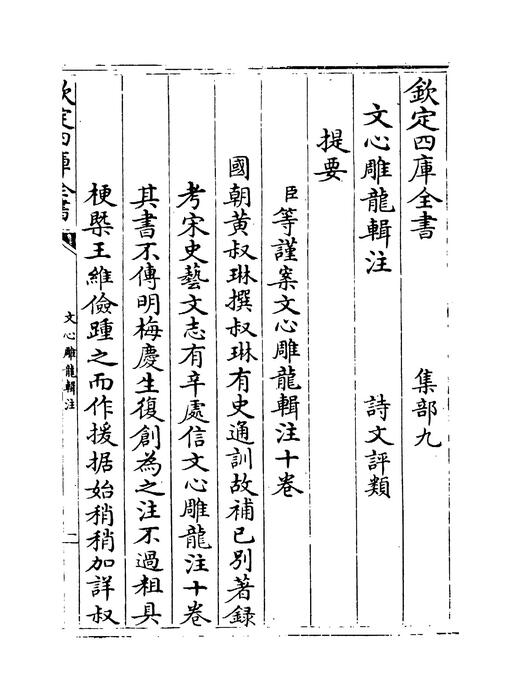 欽定四庫全書　集部九
文心雕龍輯注　詩文評類
提要
臣等謹案文心雕龍輯注十卷
國朝黃叔琳撰叔琳有史通訓故補已別著錄
考宋史藝文志有辛處信文心雕龍注十卷
其書不傳明梅慶生復創為之注不過粗具
梗槩王維儉踵之而作援据始稍稍加詳叔
欽定四庫全書　文心雕龍輯注　二